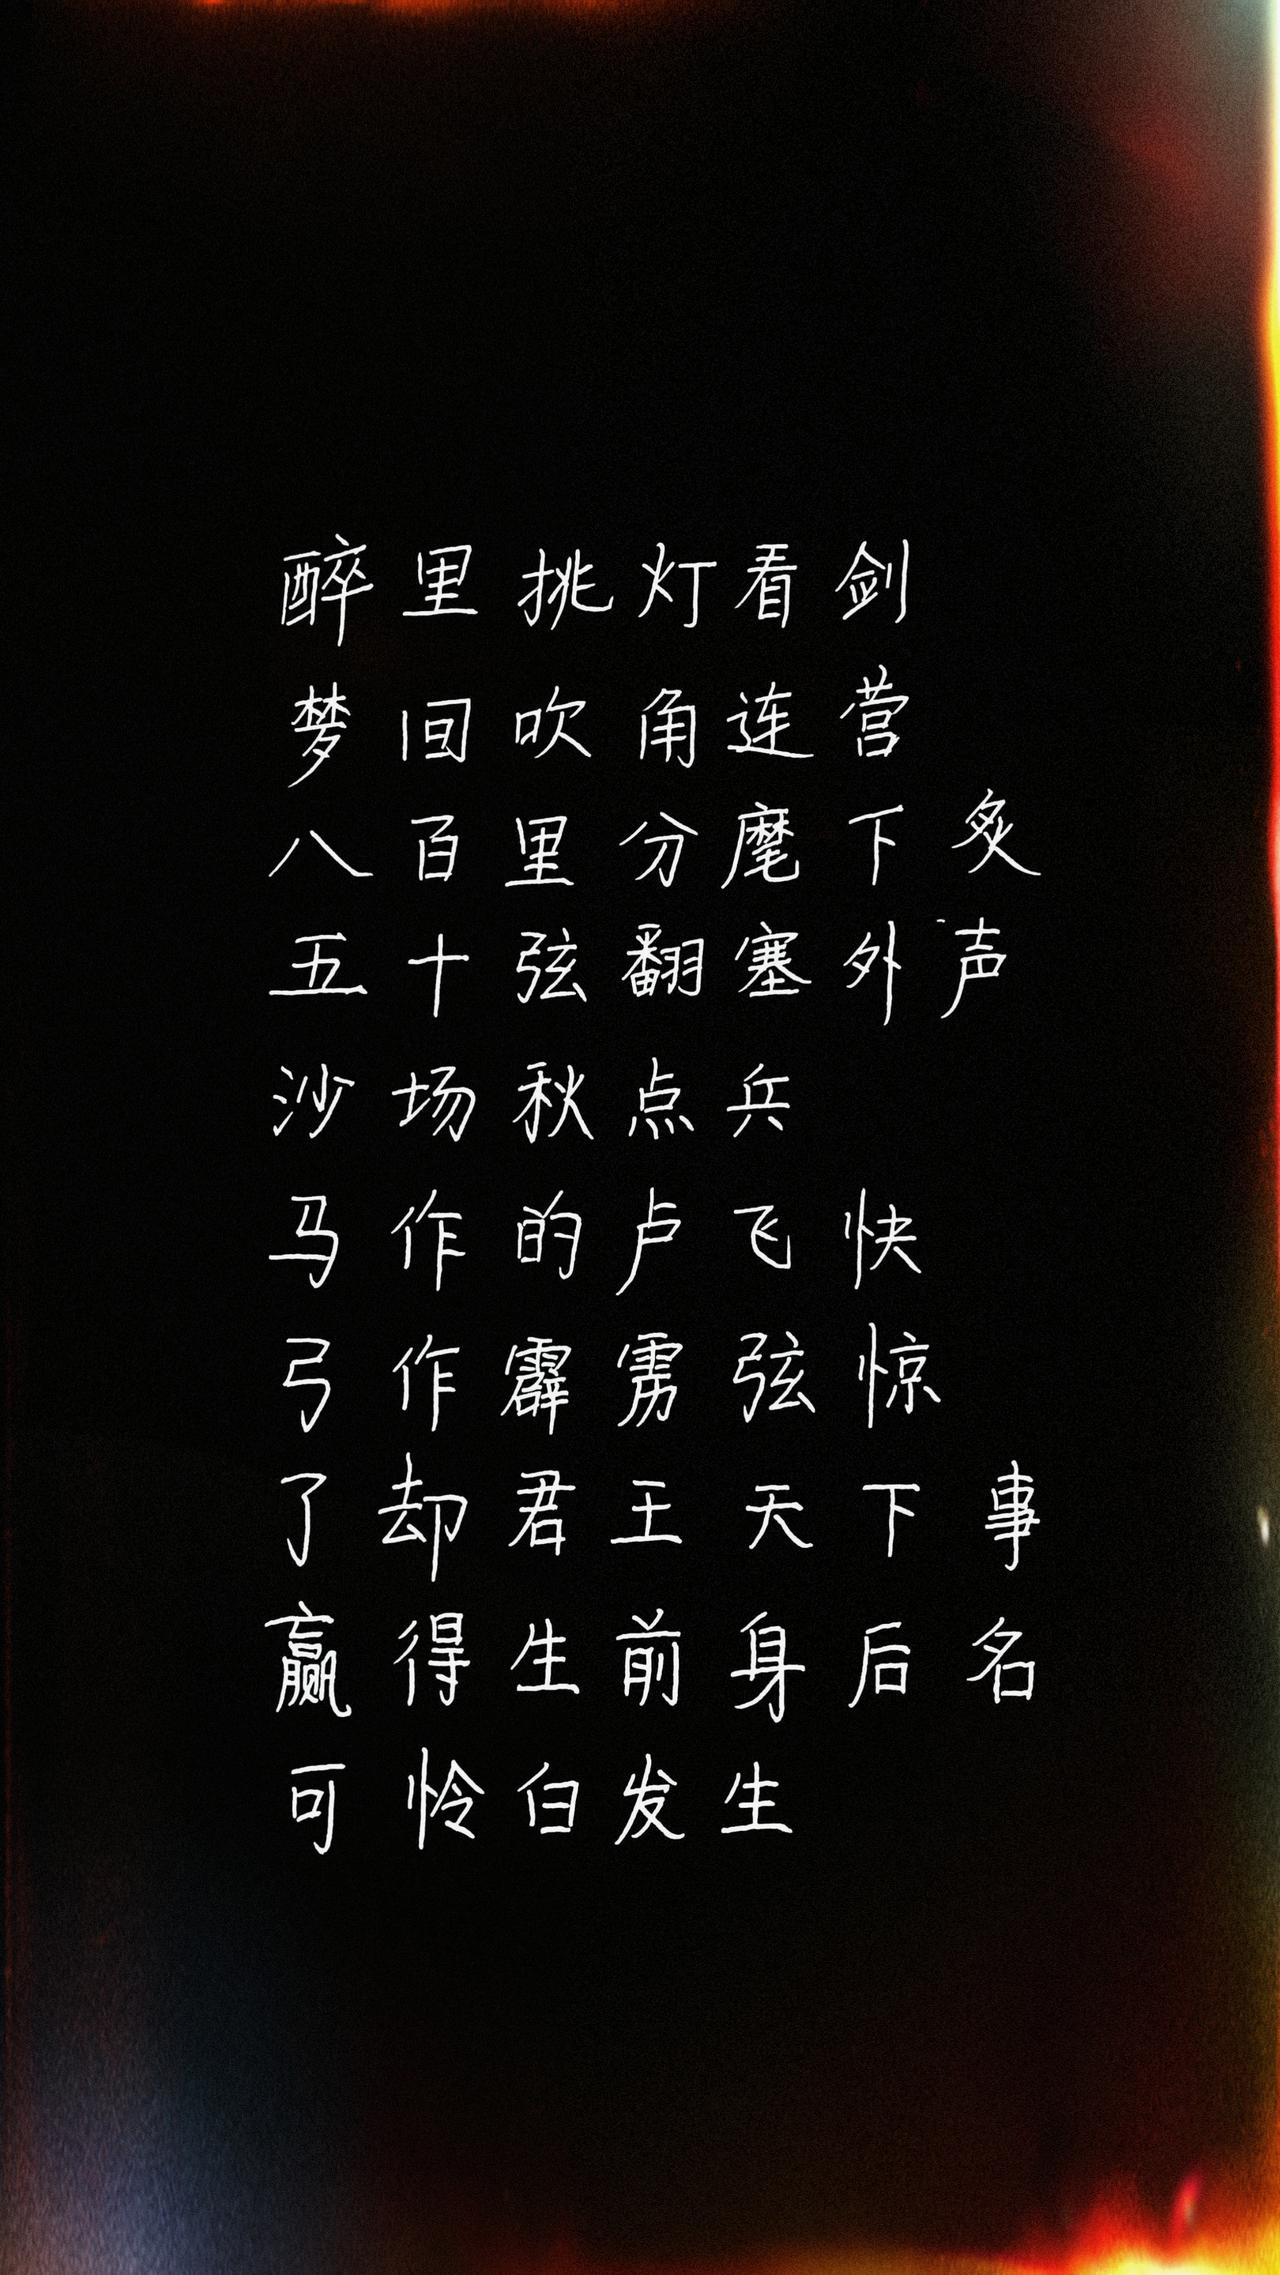 醉里挑灯看剑
梦回吹角连营
八百里分麾下炙
五十弦翻塞外声
沙场秋点兵
马作的卢飞快
弓作霹雳弦惊
了却君王天下事
赢得生前身后名
可怜白发生